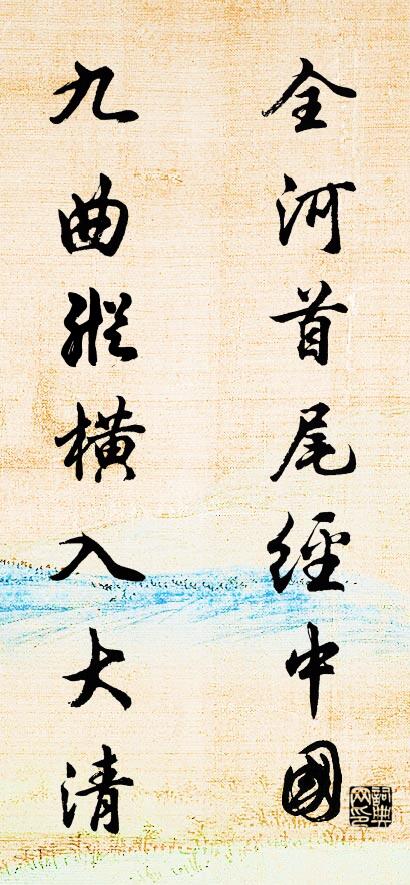 全河首尾經中國
九曲縱橫入大清
詞典
网印